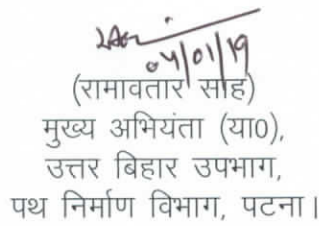 04/01/19
(रामावतार साह)
मुख्य अभियंता (या0),
उत्तर बिहार उपभाग,
पथ निर्माण विभाग, पटना।